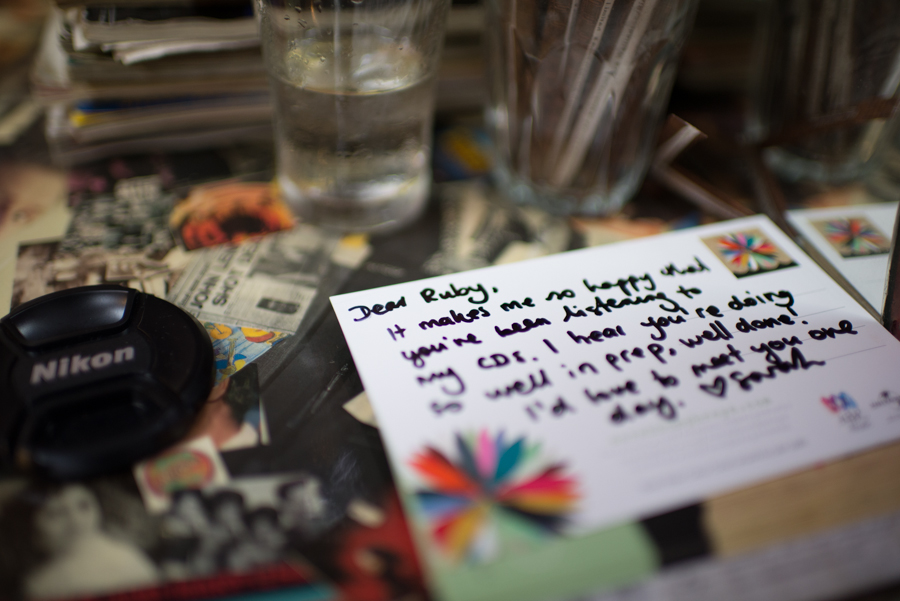 Dear Ruby,
It makes me so happy that
you've been listening to
my CDs. I hear you're doing
so well in prep, well done.
I'd love to meet you one
day. ♡ Sarah
Nikon